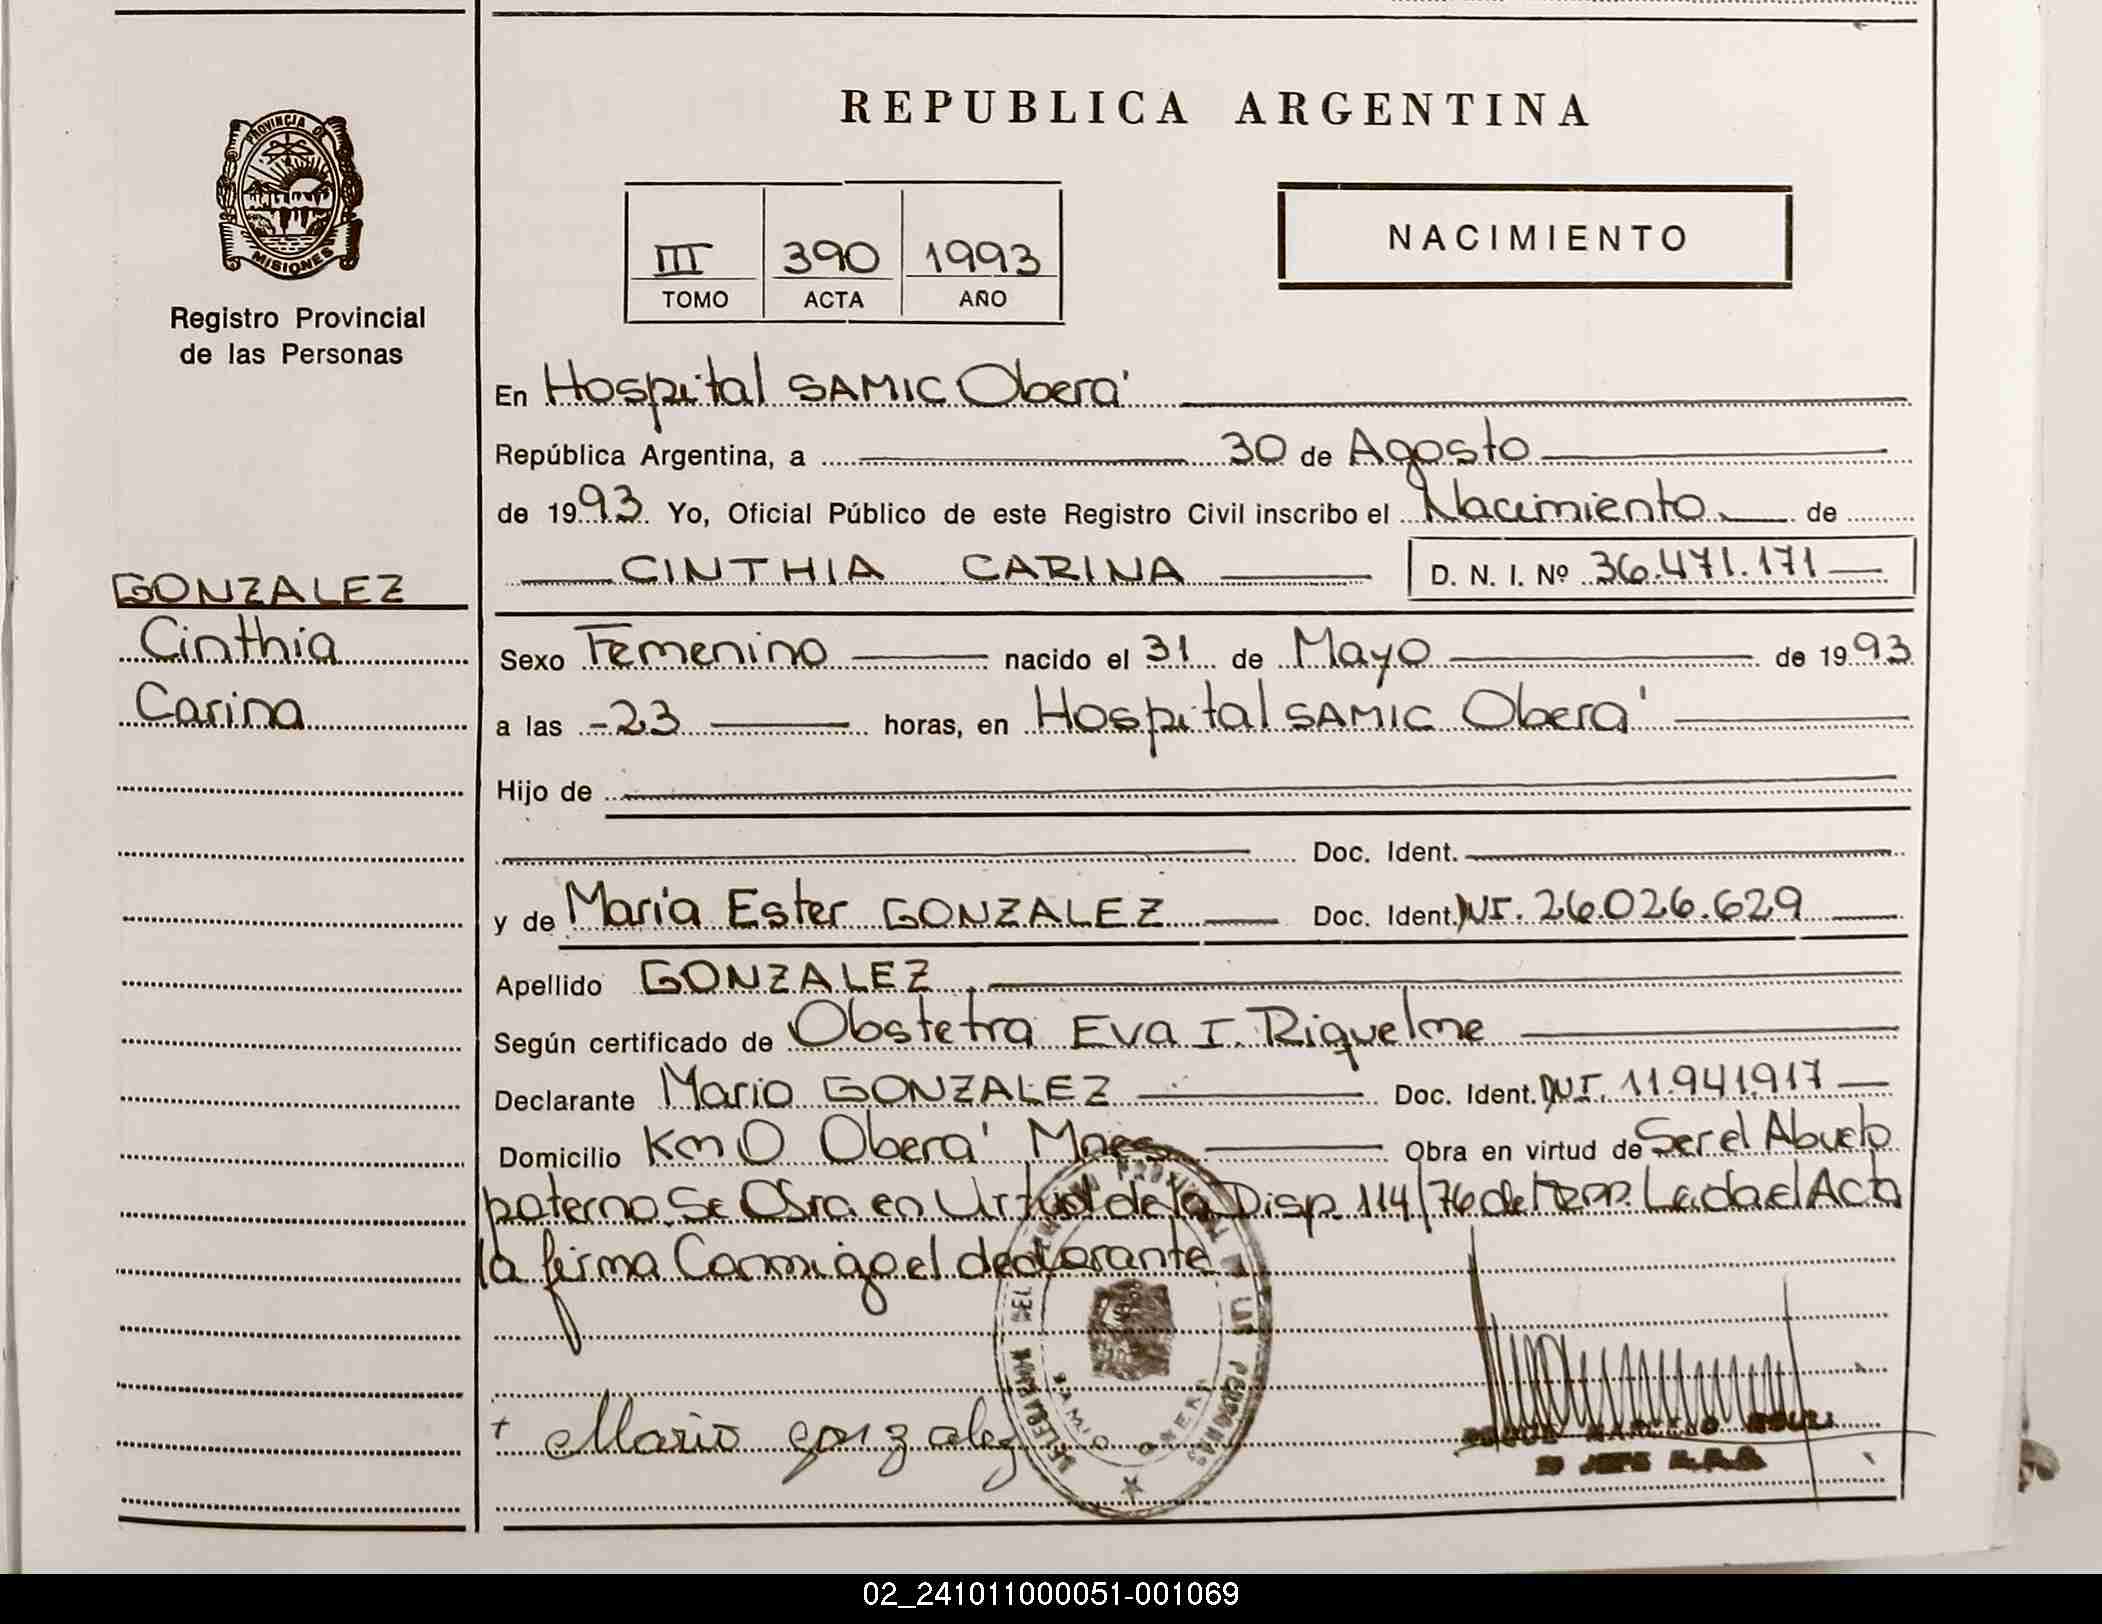 REPUBLICA ARGENTINA
PROVINCIA DE
MISIONES
Registro Provincial
de las Personas
III 390 1993
TOMO ACTA AÑO
NACIMIENTO
En Hospital SAMIC Oberá
República Argentina, a 30 de Agosto
de 1993 Yo, Oficial Público de este Registro Civil inscribo el Nacimiento de
CINTHIA CARINA D. N. I. Nº 36.471.171
GONZALEZ
Cinthia
Carina
Sexo Femenino nacido el 31 de Mayo de 1993
a las -23 horas, en Hospital SAMIC Oberá
Hijo de
Doc. Ident.
y de María Ester GONZALEZ Doc. Ident. DNI. 26.026.629
Apellido GONZALEZ
Según certificado de Obstetra Eva I. Riquelme
Declarante Mario GONZALEZ Doc. Ident. DNI. 11.941.917
Domicilio Km 0 Oberá Mnes Obra en virtud de Ser el Abuelo
paterno. Se Obra en Virtud de la Disp. 114/76 del Leida el Acta
la firma Conmigo el declarante
Mario gonzalez
SAMIC OBERA
02_241011000051-001069